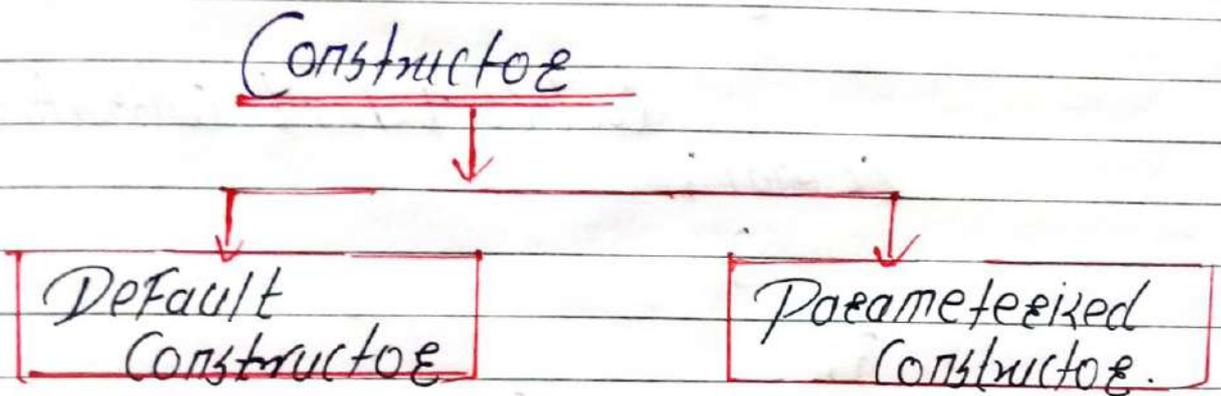 Constructor
Default
Constructor
Parameterized
Constructor.